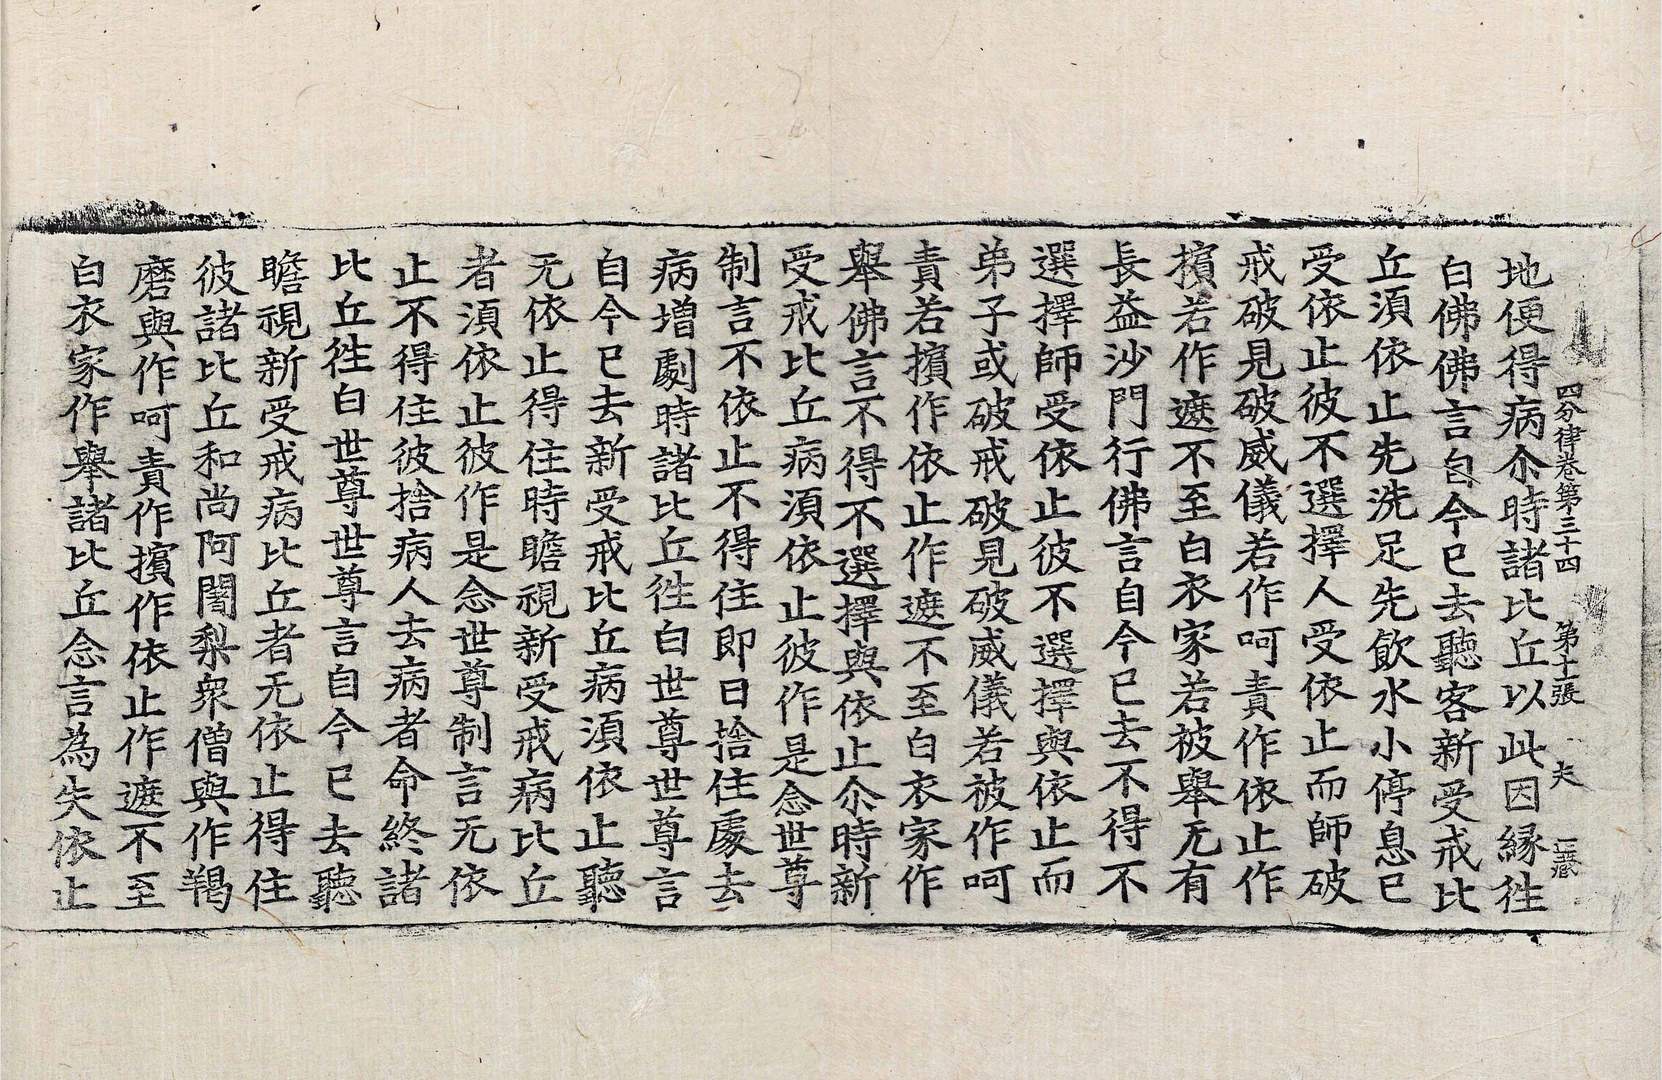 四分律卷第三十四　第十一張　夫　二藏
地便得病尒時諸比丘以此因緣徃
白佛佛言自今已去聽客新受戒比
丘須依止先洗足先飲水小停息已
受依止彼不選擇人受依止而師破
戒破見破威儀若作呵責作依止作
擯若作遮不至白衣家若被舉无有
長益沙門行佛言自今已去不得不
選擇師受依止彼不選擇與依止而
弟子或破戒破見破威儀若被作呵
責若擯作依止作遮不至白衣家作
舉佛言不得不選擇與依止尒時新
受戒比丘病須依止彼作是念世尊
制言不依止不得住即日捨住處去
病增劇時諸比丘徃白世尊世尊言
自今已去新受戒比丘病須依止聽
无依止得住時瞻視新受戒病比丘
者須依止彼作是念世尊制言无依
止不得住彼捨病人去病者命終諸
比丘徃白世尊世尊言自今已去聽
瞻視新受戒病比丘者无依止得住
彼諸比丘和尚阿闍梨衆僧與作羯
磨與作呵責作擯作依止作遮不至
白衣家作舉諸比丘念言為失依止